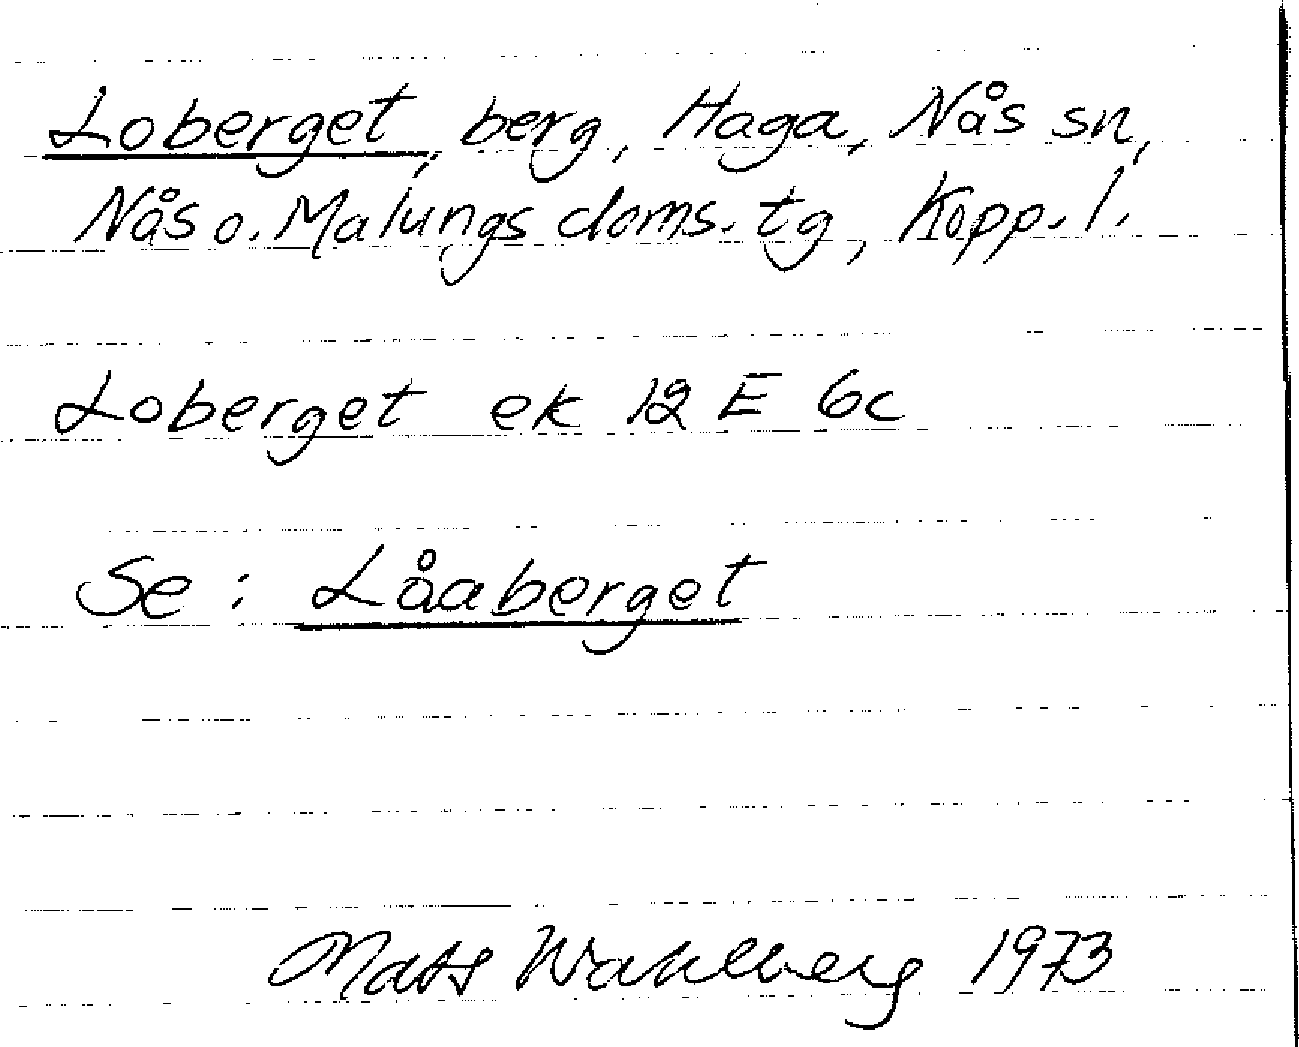 Loberget, berg, Haga, Nås sn,
Nås o. Malungs doms. tg, Kopp. l.
Loberget ek 12 E 6c
Se: Låaberget
Mats Wahlberg 1973